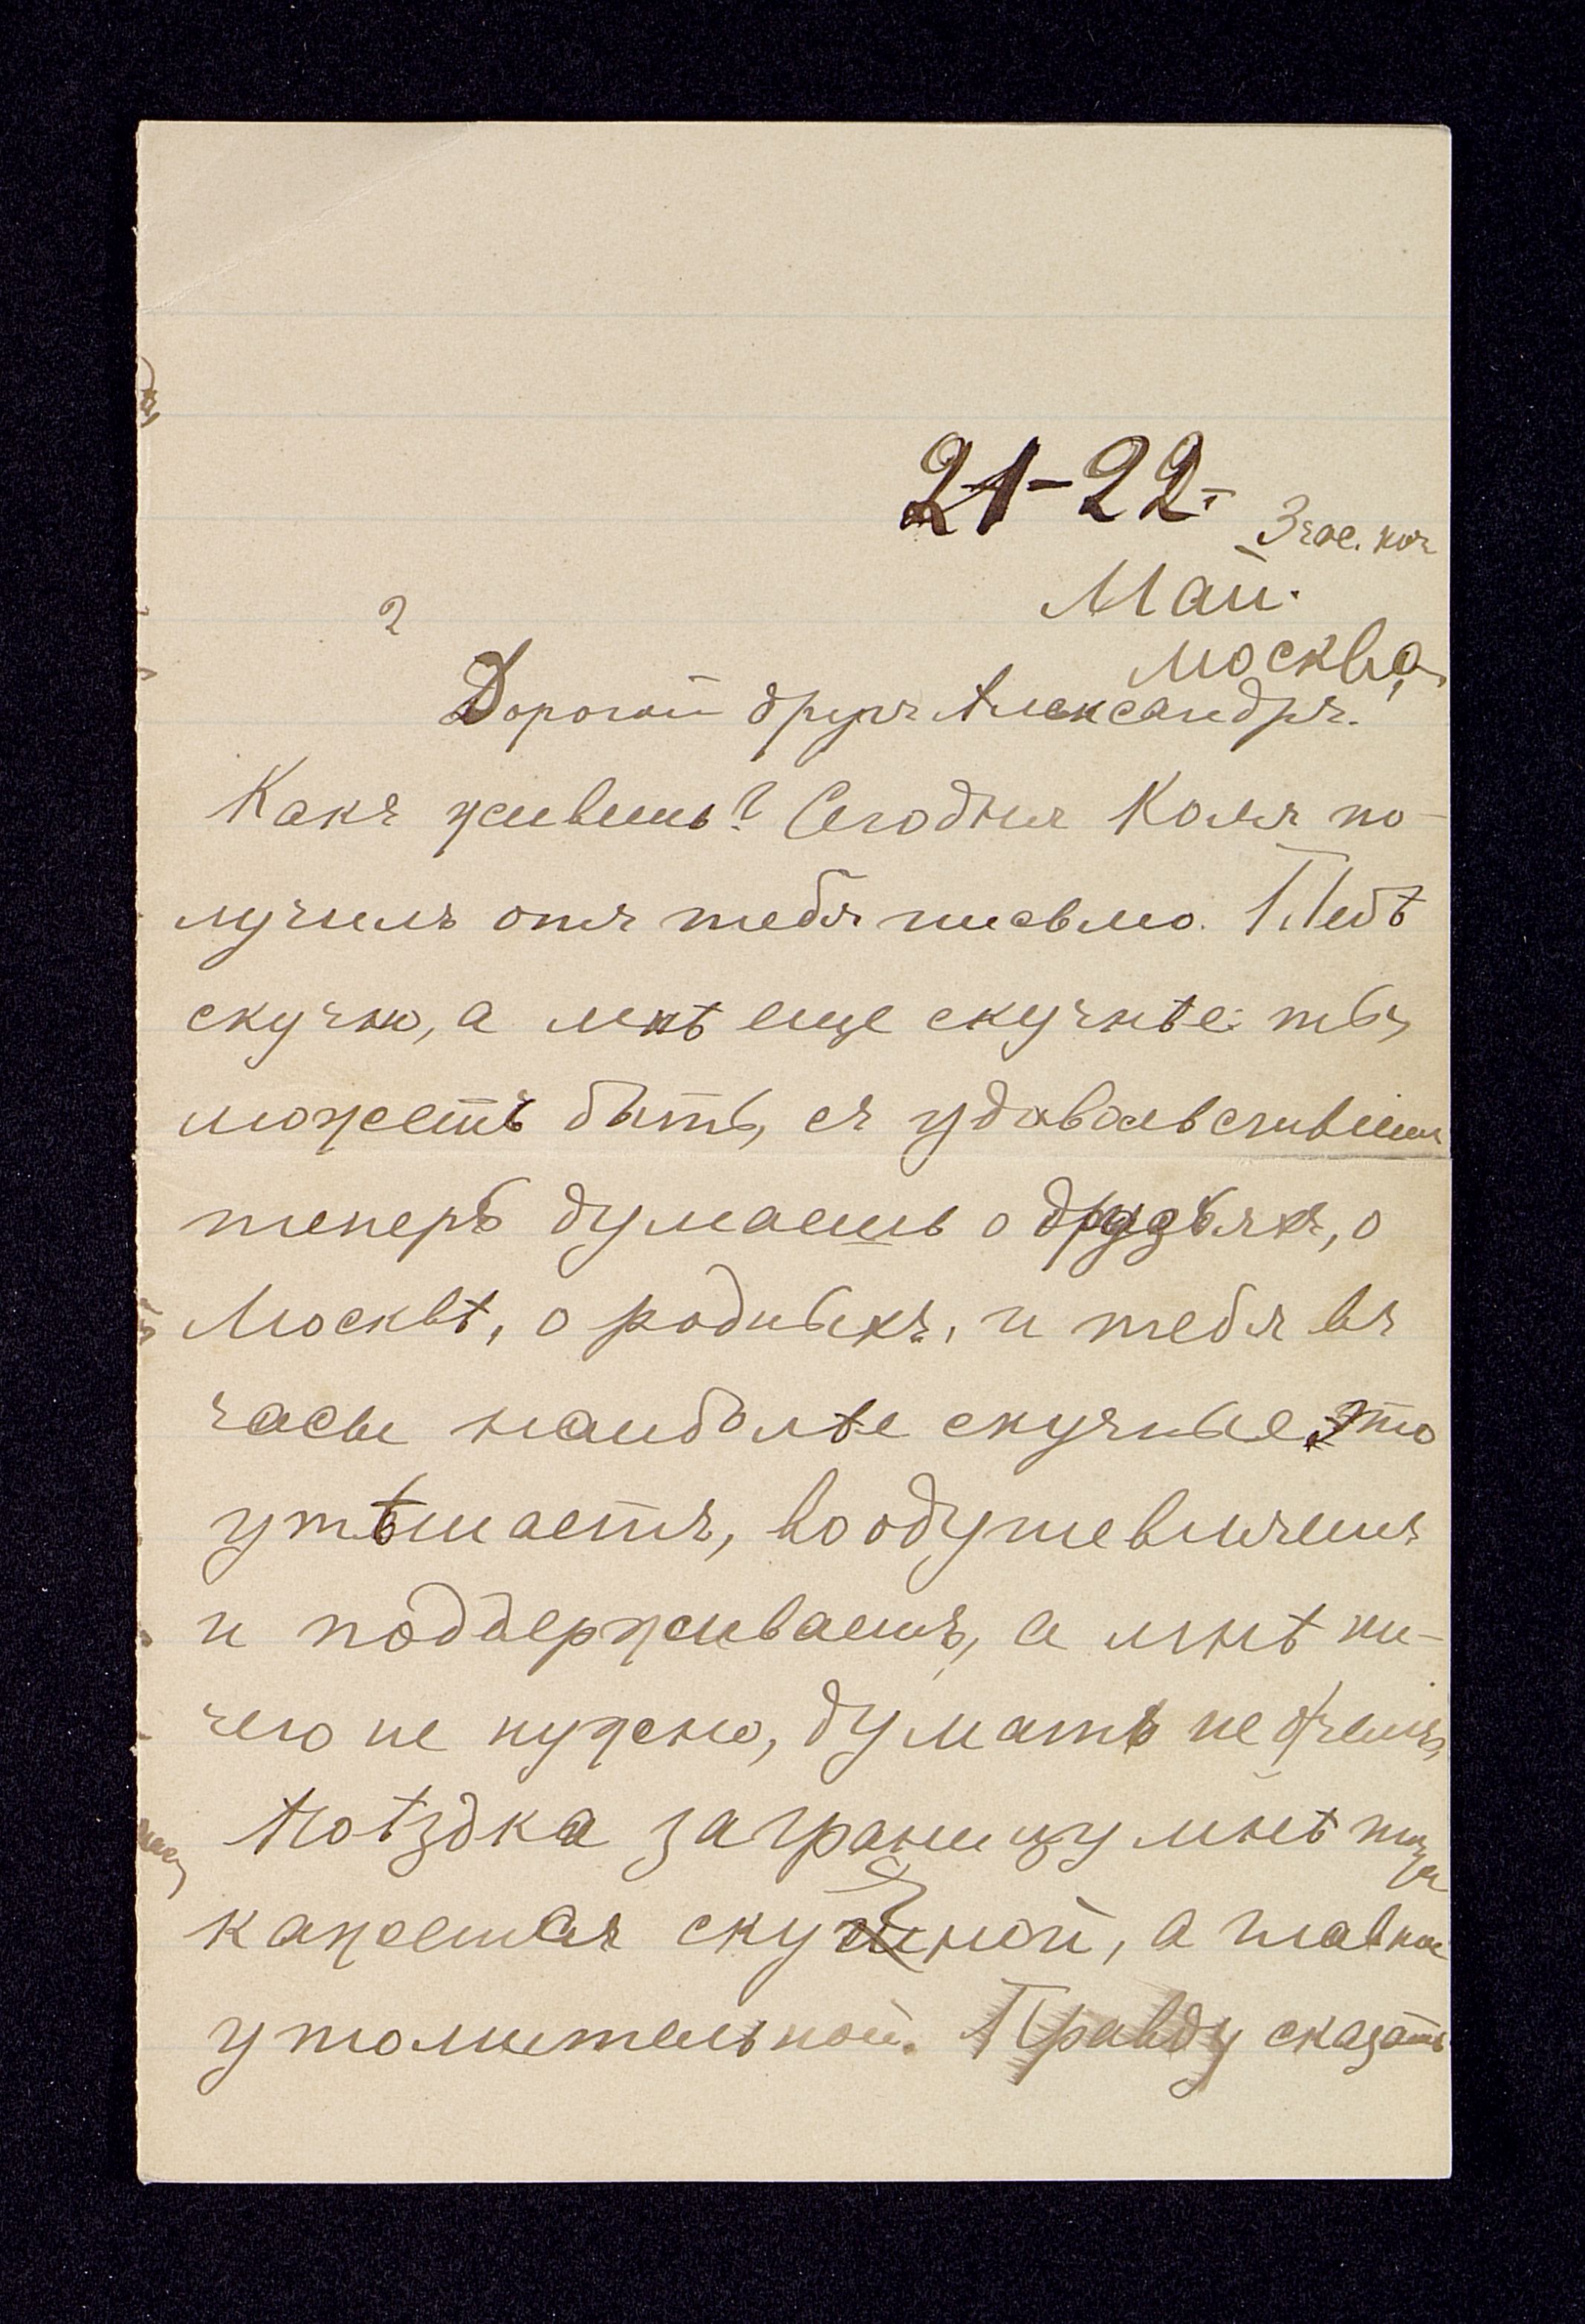 21-22-
3 час. ноч
Май.
Москва
2
Дорогой другъ Александръ!
Какъ живешь? Сегодня Коля по-
лучилъ отъ тебя письмо. Тебѣ
скучно, а мнѣ еще скучнѣе: ты,
можетъ быть, съ удовольствіем
теперь думаешь о друзьяхъ, о
Москвѣ, о родныхъ, и тебя въ
часы наиболѣе скучные это
утѣшаетъ, воодушевляетъ
и поддерживаетъ, а мнѣ ни-
чего не нужно, думать не о чемъ,
Поѣздка заграницу мнѣ
кажется скучной, а главное
утомительной. Правду сказать